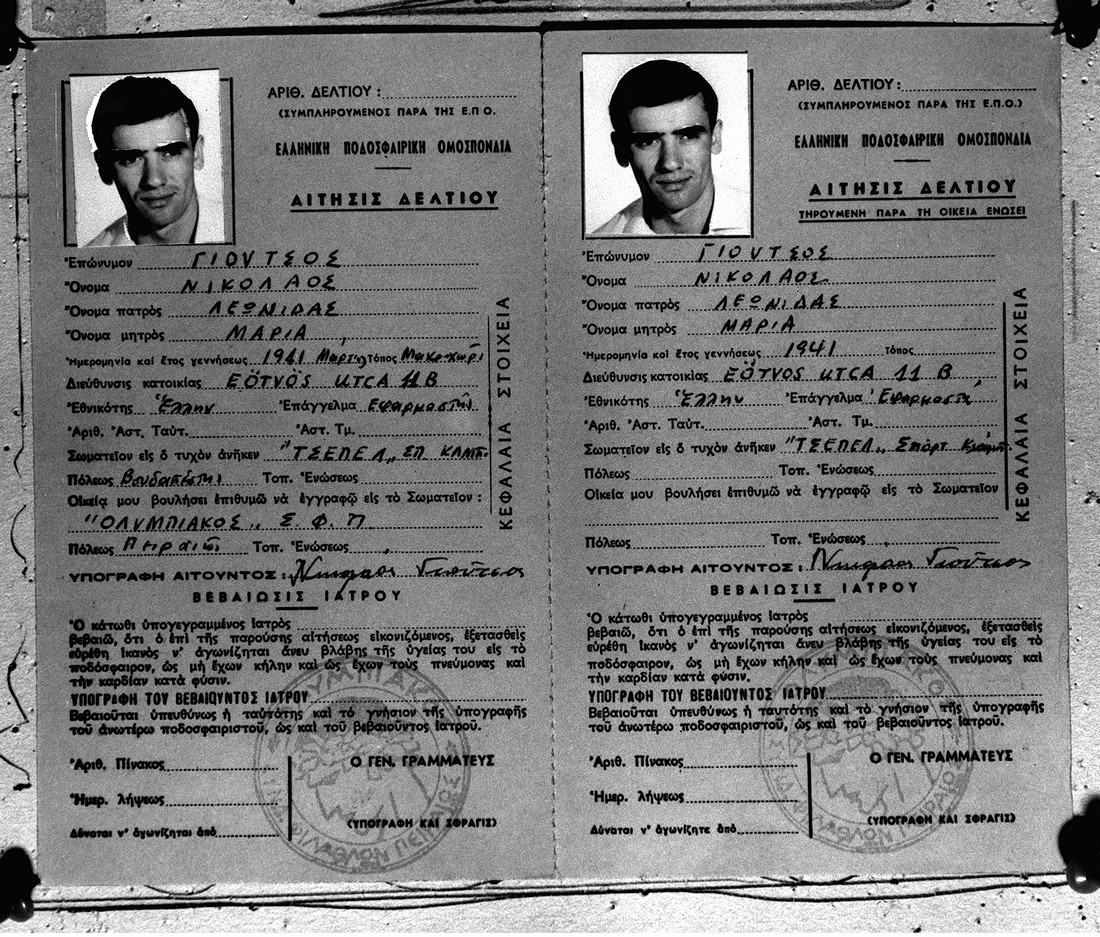 ΑΡΙΘ. ΔΕΛΤΙΟΥ :
(ΣΥΜΠΛΗΡΟΥΜΕΝΟΣ ΠΑΡΑ ΤΗΣ Ε.Π.Ο.
ΕΛΛΗΝΙΚΗ ΠΟΔΟΣΦΑΙΡΙΚΗ ΟΜΟΣΠΟΝΔΙΑ
ΑΙΤΗΣΙΣ ΔΕΛΤΙΟΥ
Ἐπώνυμον ΓΙΟΥΤΣΟΣ
Ὄνομα ΝΙΚΟΛΑΟΣ
Ὄνομα πατρὸς ΛΕΩΝΙΔΑΣ
Ὄνομα μητρὸς ΜΑΡΙΑ
Ἡμερομηνία καὶ ἔτος γεννήσεως 1941 Τόπος Μακροχώρι
Διεύθυνσις κατοικίας EÖTVÖS UTCA 11 B
Ἐθνικότης Ἕλλην Ἐπάγγελμα Ἐφαρμοστής
Ἀριθ. Ἀστ. Ταύτ. Ἀστ. Τμ.
Σωματεῖον εἰς ὃ τυχὸν ἀνῆκεν "ΤΣΕΠΕΛ" ΣΠ ΚΛΑΜΠ.
Πόλεως Βουδαπέστη Τοπ. Ἑνώσεως
Οἰκείᾳ μου βουλήσει ἐπιθυμῶ νὰ ἐγγραφῶ εἰς τὸ Σωματεῖον :
"ΟΛΥΜΠΙΑΚΟΣ" Σ. Φ. Π
Πόλεως Πειραιῶς Τοπ. Ἑνώσεως
ΥΠΟΓΡΑΦΗ ΑΙΤΟΥΝΤΟΣ : Νικόλαος Γιούτσος
ΚΕΦΑΛΑΙΑ ΣΤΟΙΧΕΙΑ
ΒΕΒΑΙΩΣΙΣ ΙΑΤΡΟΥ
Ὁ κάτωθι ὑπογεγραμμένος Ιατρὸς
βεβαιῶ, ὅτι ὁ ἐπὶ τῆς παρούσης αἰτήσεως εἰκονιζόμενος, ἐξετασθεὶς
εὑρέθη Ικανὸς ν' ἀγωνίζηται ἄνευ βλάβης τῆς ὑγείας του εἰς τὸ
ποδόσφαιρον, ὡς μὴ ἔχων κήλην καὶ ὡς ἔχων τοὺς πνεύμονας καὶ
τὴν καρδίαν κατὰ φύσιν.
ΥΠΟΓΡΑΦΗ ΤΟΥ ΒΕΒΑΙΟΥΝΤΟΣ ΙΑΤΡΟΥ
Βεβαιοῦται ὑπευθύνως ἡ ταὐτότης καὶ τὸ γνήσιον τῆς ὑπογραφῆς
τοῦ ἀνωτέρω ποδοσφαιριστοῦ, ὡς καὶ τοῦ βεβαιοῦντος Ιατροῦ.
Ἀριθ. Πίνακος
Ο ΓΕΝ. ΓΡΑΜΜΑΤΕΥΣ
Ἡμερ. λήψεως
Δύναται ν' ἀγωνίζηται ἀπὸ
(ΥΠΟΓΡΑΦΗ ΚΑΙ ΣΦΡΑΓΙΣ)
ΑΡΙΘ. ΔΕΛΤΙΟΥ :
(ΣΥΜΠΛΗΡΟΥΜΕΝΟΣ ΠΑΡΑ ΤΗΣ Ε.Π.Ο.)
ΕΛΛΗΝΙΚΗ ΠΟΔΟΣΦΑΙΡΙΚΗ ΟΜΟΣΠΟΝΔΙΑ
ΑΙΤΗΣΙΣ ΔΕΛΤΙΟΥ
ΤΗΡΟΥΜΕΝΗ ΠΑΡΑ ΤΗ ΟΙΚΕΙΑ ΕΝΩΣΕΙ
Ἐπώνυμον ΓΙΟΥΤΣΟΣ
Ὄνομα ΝΙΚΟΛΑΟΣ
Ὄνομα πατρὸς ΛΕΩΝΙΔΑΣ
Ὄνομα μητρὸς ΜΑΡΙΑ
Ἡμερομηνία καὶ ἔτος γεννήσεως 1941 Τόπος
Διεύθυνσις κατοικίας EÖTVOS UTCA 11 B
Ἐθνικότης Ἕλλην Ἐπάγγελμα
Ἀριθ. Ἀστ. Ταύτ. Ἀστ. Τμ.
Σωματεῖον εἰς ὃ τυχὸν ἀνῆκεν "ΤΣΕΠΕΛ" Σπόρτ
Πόλεως Τοπ. Ἑνώσεως
Οἰκείᾳ μου βουλήσει ἐπιθυμῶ νὰ ἐγγραφῶ εἰς τὸ Σωματεῖον
Πόλεως Τοπ. Ἑνώσεως
ΥΠΟΓΡΑΦΗ ΑΙΤΟΥΝΤΟΣ : Νικόλαος Γιούτσος
ΚΕΦΑΛΑΙΑ ΣΤΟΙΧΕΙΑ
ΒΕΒΑΙΩΣΙΣ ΙΑΤΡΟΥ
Ὁ κάτωθι ὑπογεγραμμένος Ιατρὸς
βεβαιῶ, ὅτι ὁ ἐπὶ τῆς παρούσης αἰτήσεως εἰκονιζόμενος, ἐξετασθεὶς
εὑρέθη Ικανὸς ν' ἀγωνίζηται ἄνευ βλάβης τῆς ὑγείας του εἰς τὸ
ποδόσφαιρον, ὡς μὴ ἔχων κήλην καὶ ὡς ἔχων τοὺς πνεύμονας καὶ
τὴν καρδίαν κατὰ φύσιν.
ΥΠΟΓΡΑΦΗ ΤΟΥ ΒΕΒΑΙΟΥΝΤΟΣ ΙΑΤΡΟΥ
Βεβαιοῦται ὑπευθύνως ἡ ταυτότης καὶ τὸ γνήσιον τῆς ὑπογραφῆς
τοῦ ἀνωτέρω ποδοσφαιριστοῦ, ὡς καὶ τοῦ βεβαιοῦντος Ιατροῦ.
Ἀριθ. Πίνακος
Ο ΓΕΝ. ΓΡΑΜΜΑΤΕΥΣ
Ἡμερ. λήψεως
Δύναται ν' ἀγωνίζητε ἀπὸ
(ΥΠΟΓΡΑΦΗ ΚΑΙ ΣΦΡΑΓΙΣ)